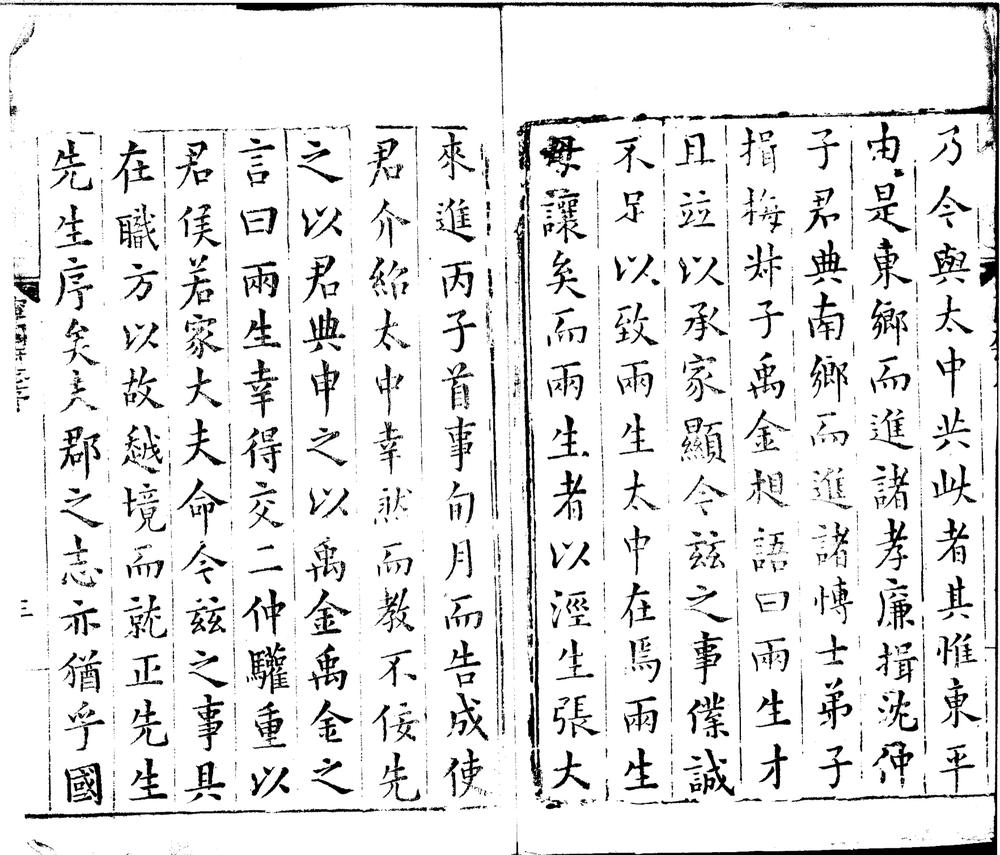 乃令與太中共此者其惟東平
由是東鄉而進諸孝廉揖沈仲
子君典南鄉而進諸博士弟子
揖梅叔子禹金相語曰兩生才
且竝以承家顯令茲之事僕誠
不足以致兩生太中在焉兩生
毋讓矣而兩生者以涇生張大
來進丙子首事旬月而告成使
君介紹太中幸然而教不佞先
之以君典申之以禹金禹金之
言曰兩生幸得交二仲驩重以
君侯若家大夫命今茲之事具
在職方以故越境而就正先生
先生序矣夫郡之志亦猶乎國
三